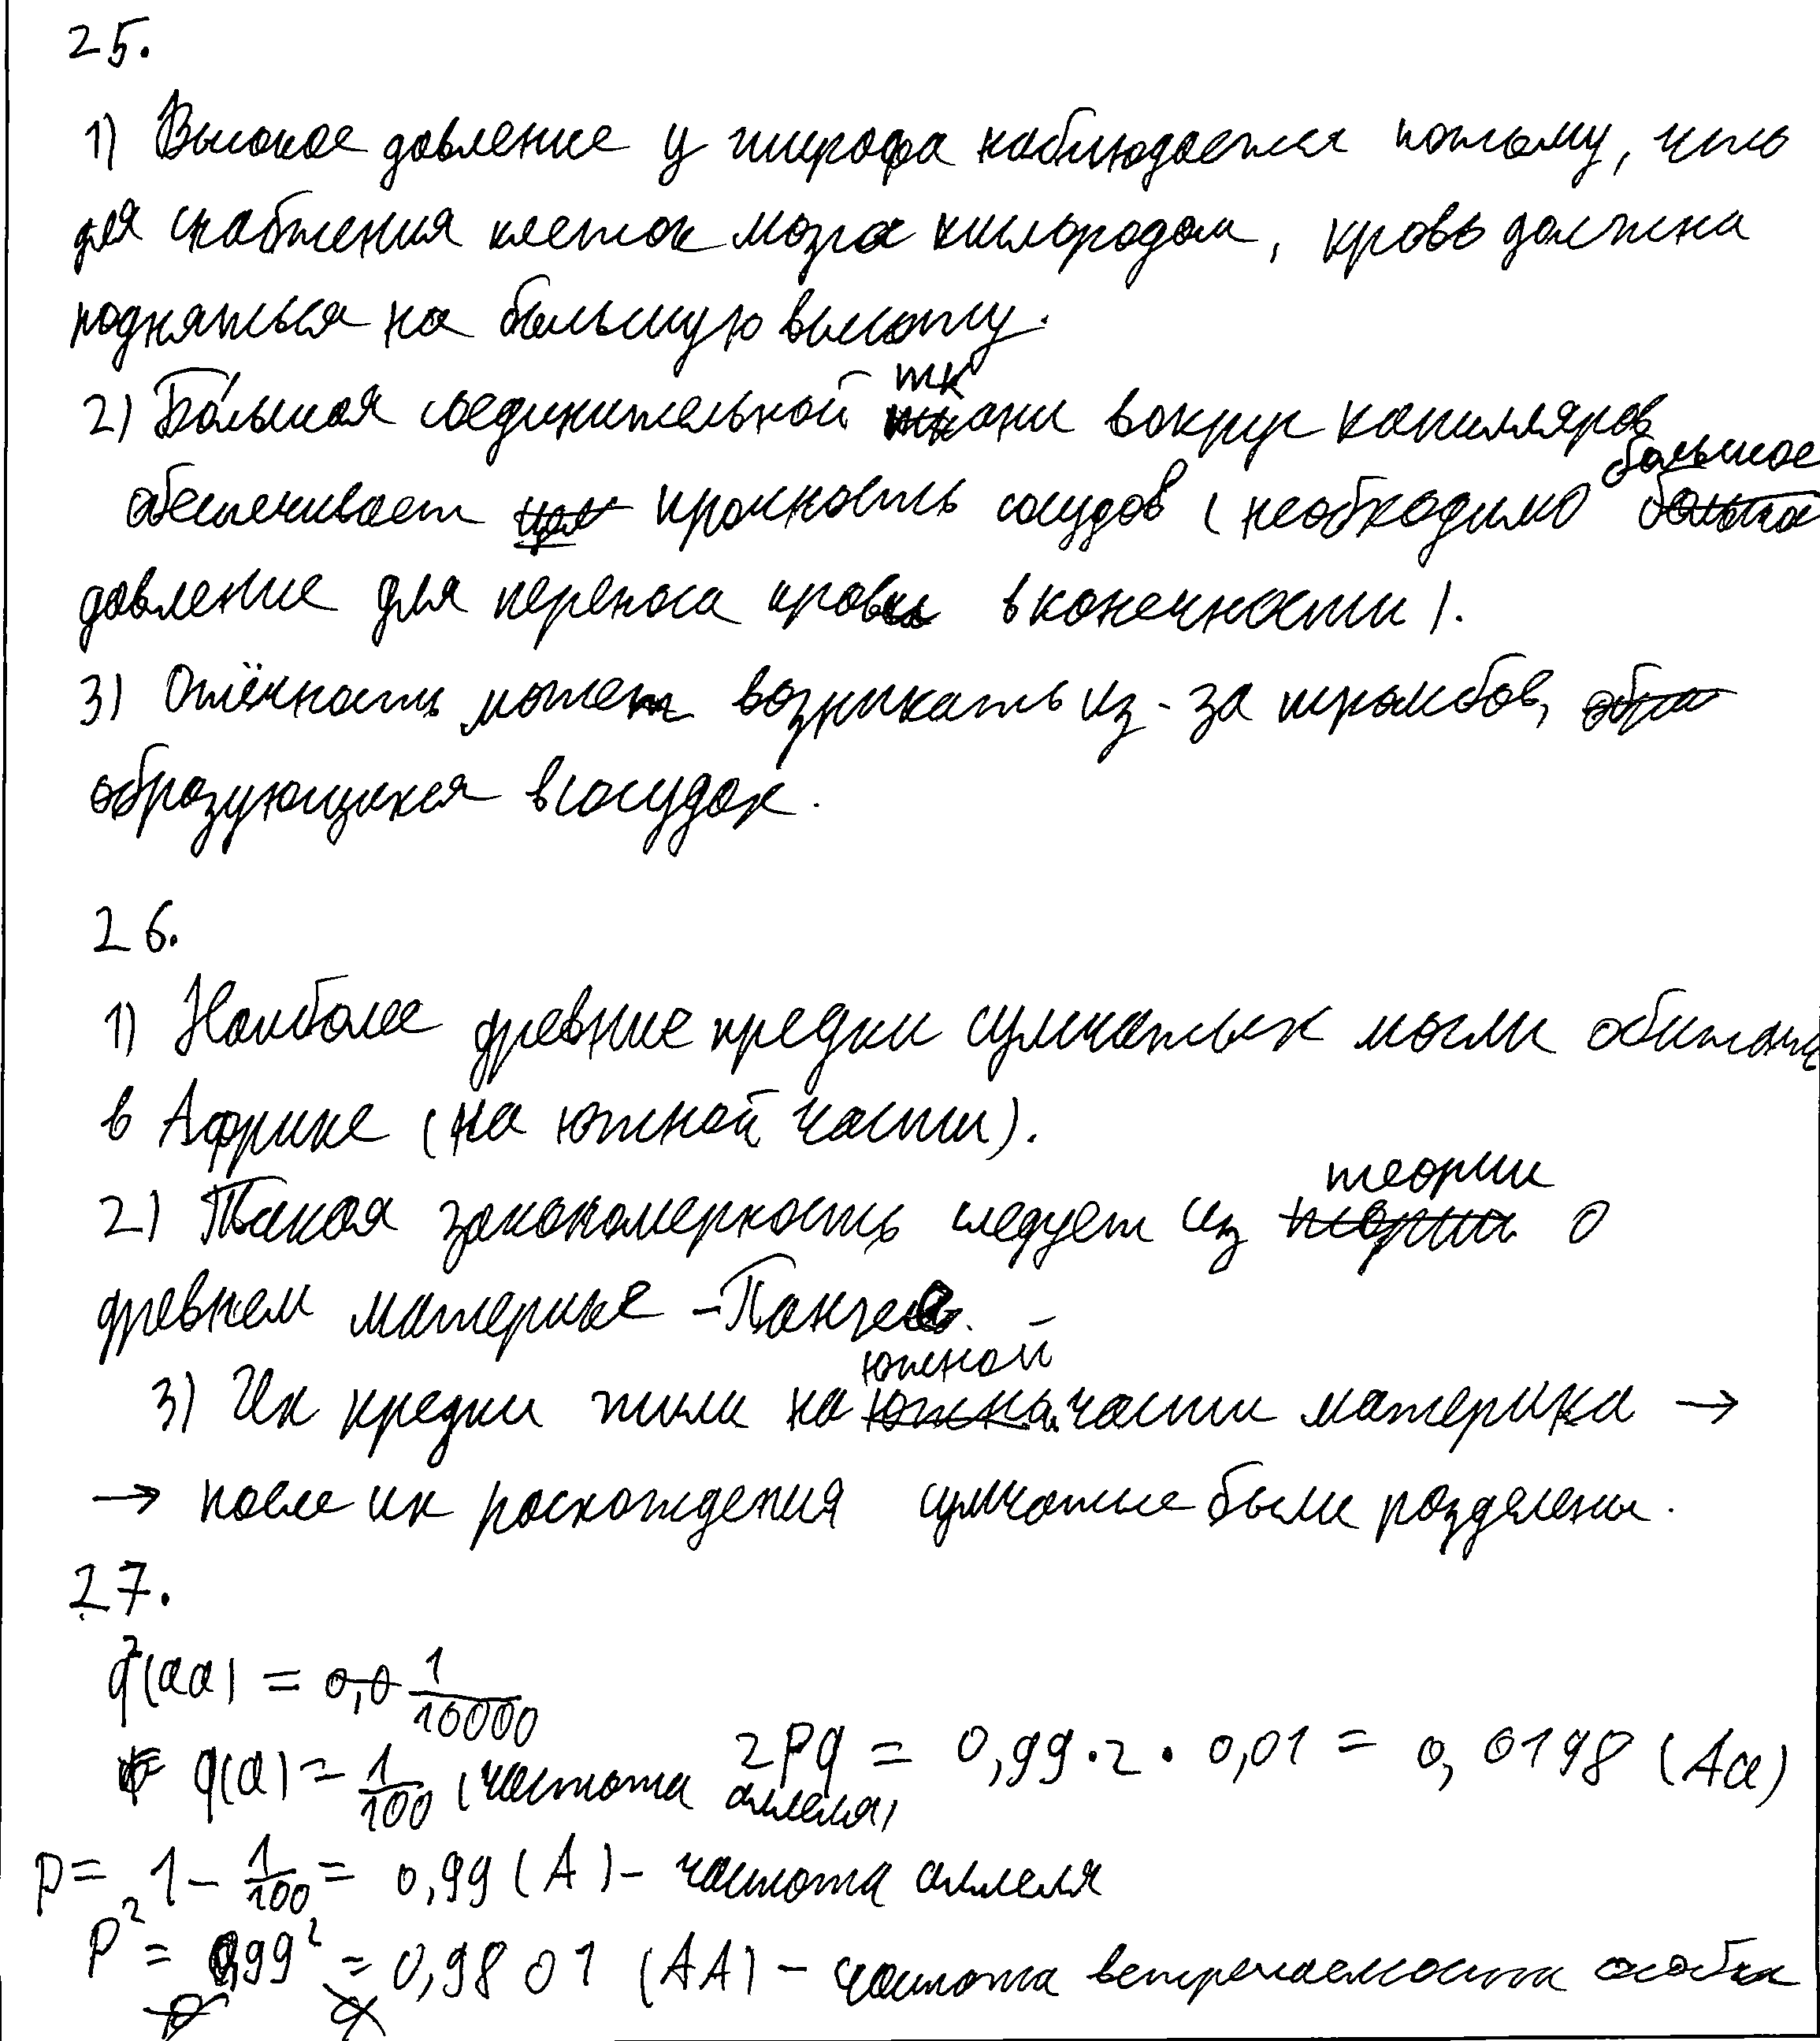 25.
1) Высокое давление у жирафа наблюдается потому, что
для снабжения клеток мозга кислородом, кровь должна
подняться на большую высоту.
2) Бо́льшая соединительной тк
ани вокруг капилляров
большое
обеспечивает прочность сосудов (необходимо больша
давление для переноса крови в конечности).
3) Отёчность может возникать из-за тромбов,
образующихся в сосудах.
26.
1) Наиболее древние предки сумчатых могли обитать
в Африке (на южной части).
теории
2) Такая закономерность следует из теории о
древнем материке - Пангее.
южной
3) Их предки жили на южна части материка →
→ после их расхождения сумчатые были разделены.
27.
q²(aa) = 0,0 1/10000
q(a) = 1/100 (частота аллеля) 2pq = 0,99·2·0,01 = 0,0198 (Aa)
p = 1 - 1/100 = 0,99 (A) - частота аллеля
p² = 0,99² = 0,9801 (AA) - частота встречаемости особи